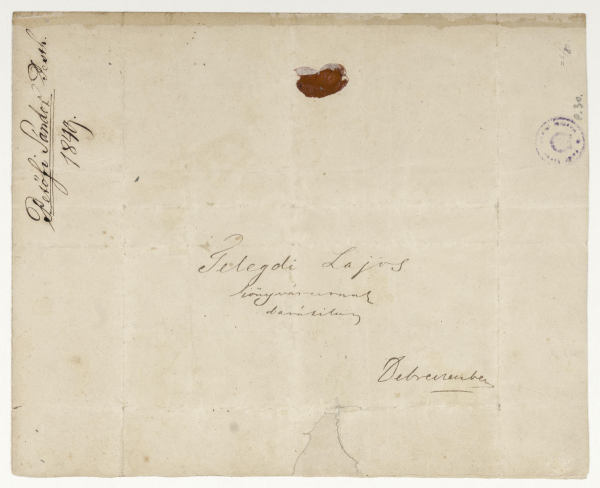 Petőfi Sándor Pesth.
1849.
Telegdi Lajos
könyvárusnak
barátilag
Debreczenben
P. 30.